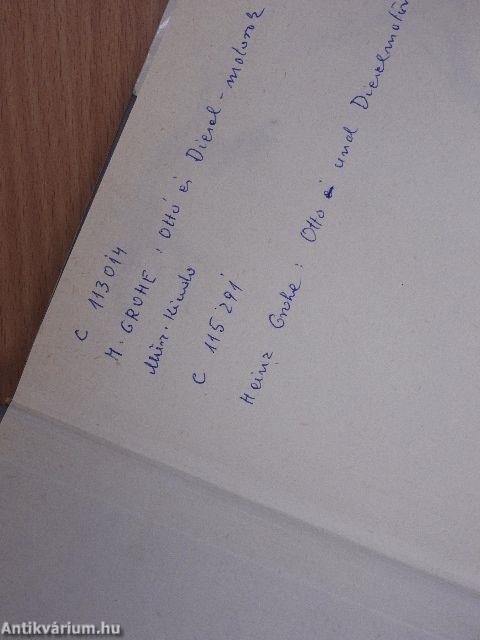 C 113014
H. GROHE : Ottó és Diesel-motorok
Műsz. Kiadó
C 115291
Heinz Grohe : Otto und Dieselmotor
Antikvárium.hu